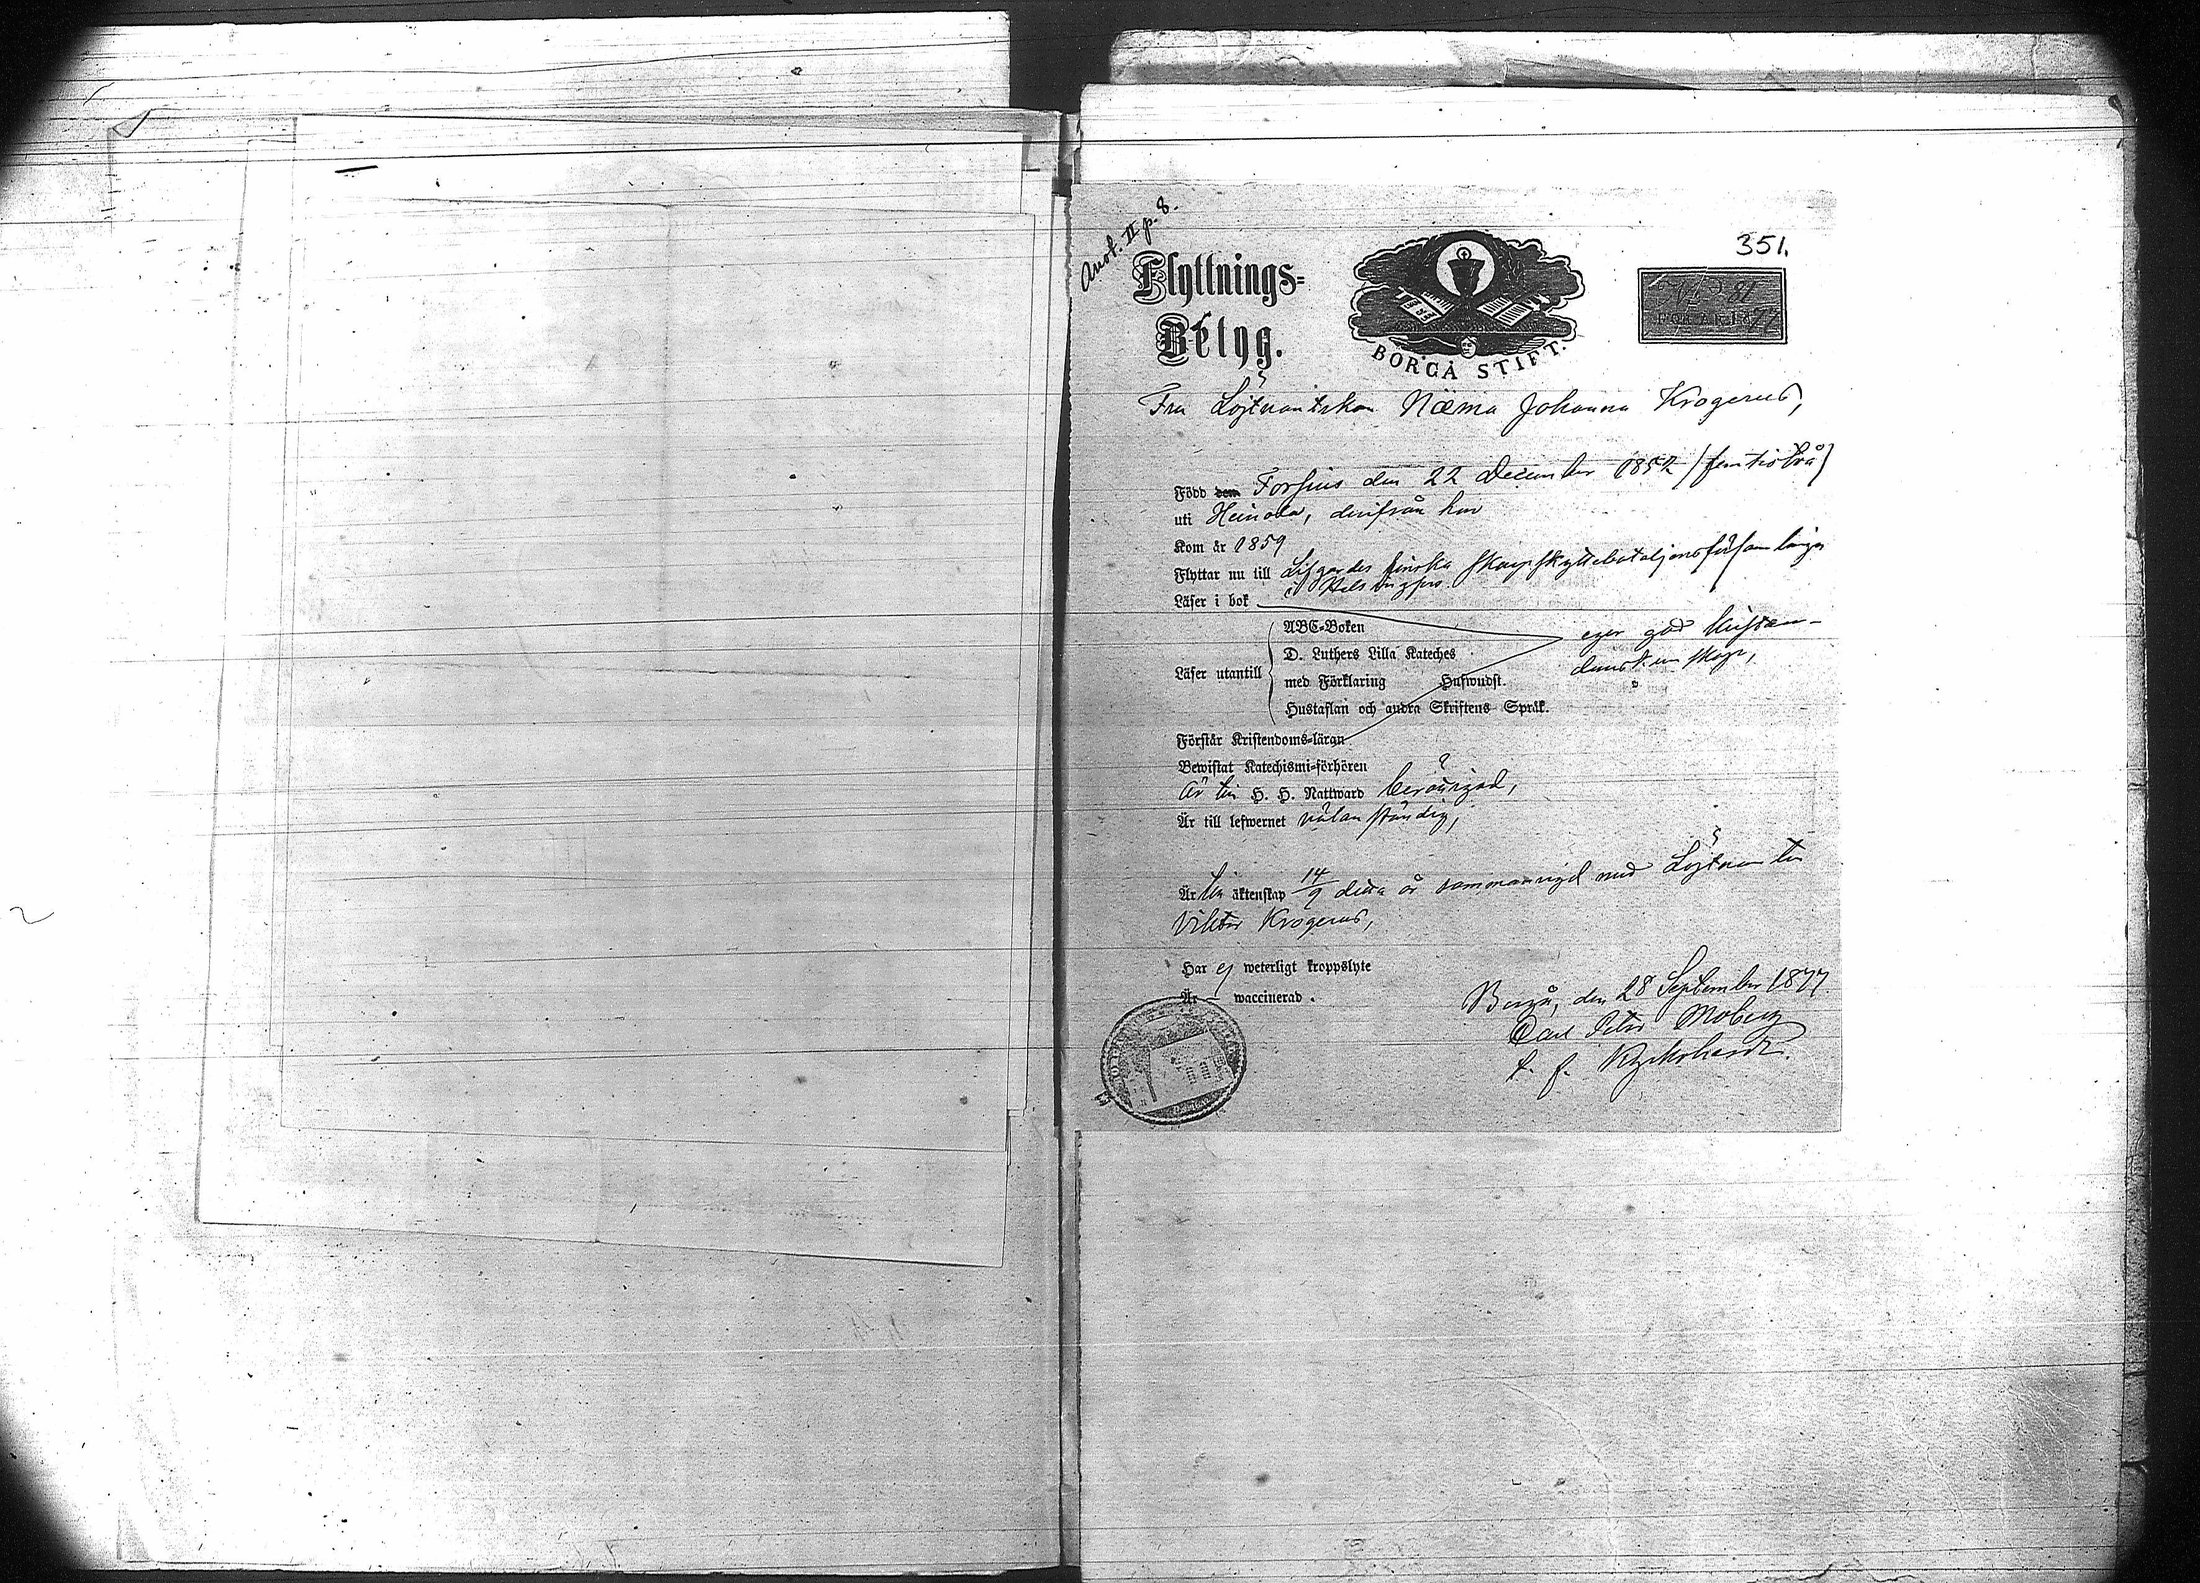 Anot. II p. 8.
351.
Flyttnings=
Betyg.
BORGÅ STIFT.
No 81
FÖR ÅR 1877
Fru Löjtnantskan Naëma Johanna Krogerus,
Född den Forsius den 22 December 1852 (femtiotvå)
uti Heinola, derifrån hon
Kom år 1859
Flyttar nu till Lifgardes finska skarpskyttebataljons församling
i Helsingfors.
Läser i bok
ABC=Boken
eger god kristen-
D. Luthers Lilla Kateches
domskunskap,
Läser utantill
med Förklaring Hufwudst.
Hustaflan och andra Skriftens Språk.
Förstår Kristendoms=läran
Bewistat Katechismi=förhören
är till H. H. Nattward berättigad,
Är till lefwernet välanständig,
Är till äktenskap 14/9 detta år sammanvigd med Löjtnanten
Viktor Krogerus,
Har ej weterligt kroppslyte
Är — waccinerad.
Borgå, den 28 September 1877.
Carl Petter Moberg
t. f. Kyrkoherde.